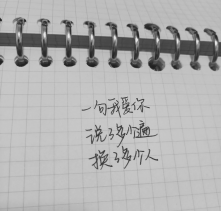 一句我爱你
说了多少个遍
换了多少个人